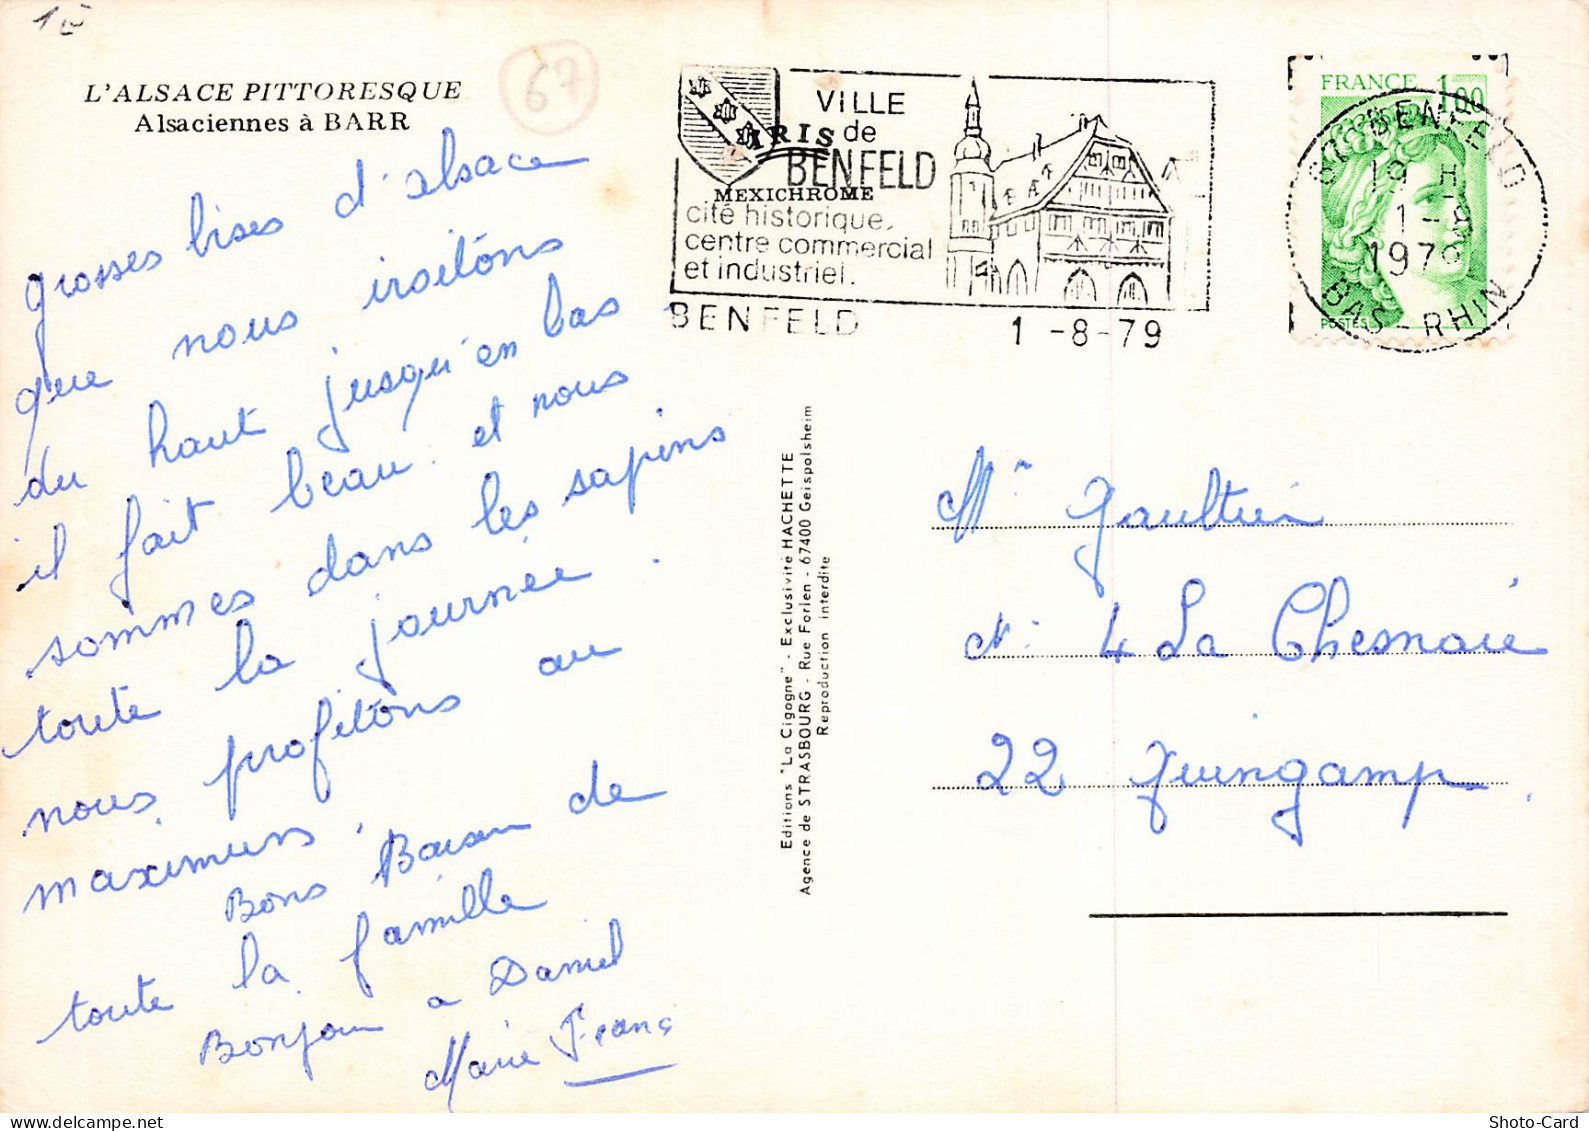 1
67
L'ALSACE PITTORESQUE
Alsaciennes à BARR
grosses bises d'alsace
que nous
du haut jusqu'en bas
il fait beau et nous
sommes dans les sapins
toute la journée.
nous profitons au
maximuns.
Bons de
toute la famille
Bonjour a Daniel
Marie
IRIS
MEXICHROME
VILLE
de
BENFELD
cité historique,
centre commercial
et industriel.
BENFELD
1 -8-79
FRANCE 1,00
POSTES
BENFELD
19 H
1 - 8
1979
BAS-RHIN
Editions "La Cigogne" - Exclusivité HACHETTE
Agence de STRASBOURG - Rue Forlen - 67400 Geispolsheim
Reproduction interdite
Mr Gaultier
N° 4 La Chesnaie
22 Guingamp.
Shoto-Card